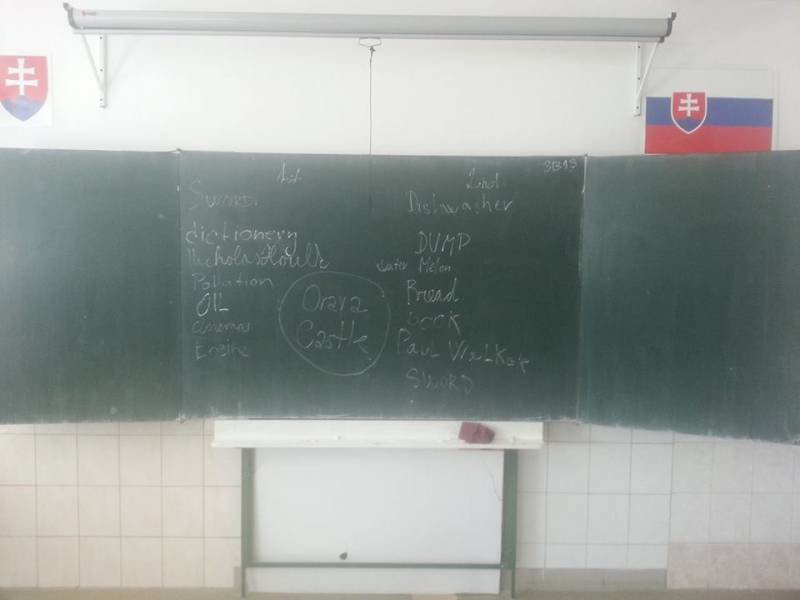 1st
Sword
dictionery
Nicholas Hoult
Pollution
OIL
cinemas
Engine
Orava
Castle
2nd
Dishwasher
DUMP
water Melon
Bread
PAUL
SWORD